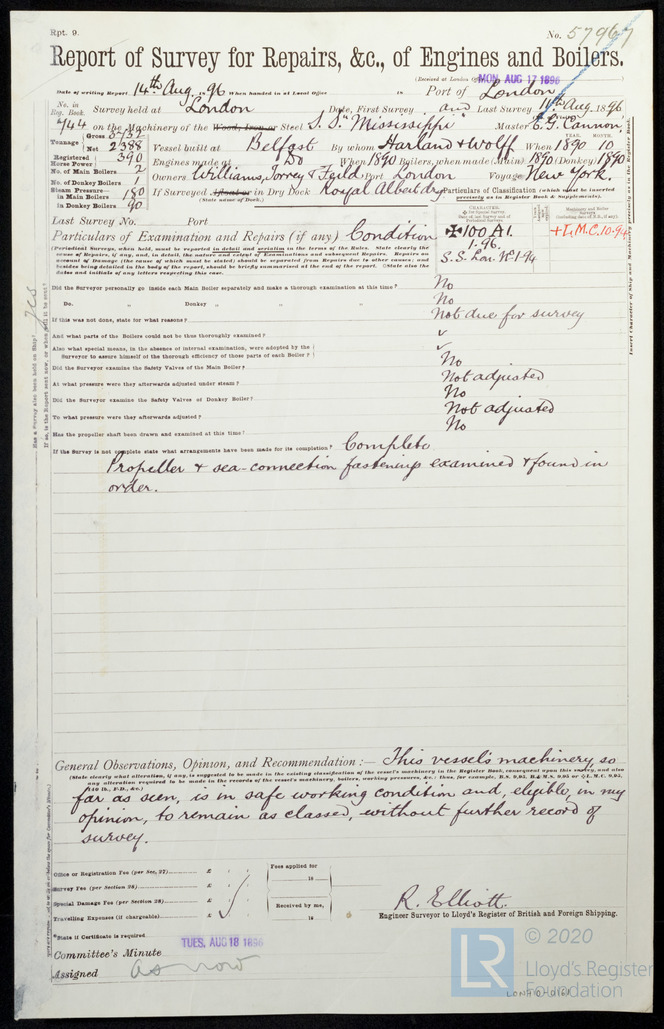 Rpt. 9.
No. 57967
Report of Survey for Repairs, &c., of Engines and Boilers.
(Received at London MON. AUG 17 1896)
Date of writing Report 14th Aug. 1896 When handed in at Local Office in Port of London
No. in Reg. Book. Survey held at London Date, First Survey and Last Survey 14th Aug. 1896
744 on the Machinery of the Wood, Iron or Steel S.S. "Mississippi" Master E. G. Cannon.
Tonnage Gross 3732
Net 2388
Vessel built at Belfast By whom Harland & Wolff When 1890 10
YEAR. MONTH.
Registered Horse Power 390 Engines made at Do When 1890 Boilers, when made (Main) 1890 (Donkey) 1890
No. of Main Boilers 2
Owners Williams, Torrey & Feild Port London Voyage New York.
No. of Donkey Boilers 1
Steam Pressure in Main Boilers 180 If Surveyed Afloat or in Dry Dock Royal Albert dry
(State name of Dock.)
in Donkey Boilers 90
Particulars of Classification (which must be inserted precisely as in Register Book & Supplements).
Last Survey No. Port
CHARACTER.
100 A1.
1.96.
S.S. Lon. No 1-94
+L.M.C. 10-94
Particulars of Examination and Repairs (if any) Condition
(Periodical Surveys, when held, must be reported in detail and seriatim in the terms of the Rules. State clearly the
cause of Repairs, if any, and, in detail, the nature and extent of Examinations and subsequent Repairs. Repairs on
account of Damage (the cause of which must be stated) should be separated from Repairs due to other causes; and
besides being detailed in the body of the report, should be briefly summarised at the end of the report. State also the
dates and initials of any letters respecting this case.)
Did the Surveyor personally go inside each Main Boiler separately and make a thorough examination at this time? No
Do. " Donkey " " " No
If this was not done, state for what reasons? Not due for survey
And what parts of the Boilers could not be thus thoroughly examined? ✓
Also what special means, in the absence of internal examination, were adopted by the
Surveyor to assure himself of the thorough efficiency of those parts of each Boiler? ✓
Did the Surveyor examine the Safety Valves of the Main Boiler? No
At what pressure were they afterwards adjusted under steam? Not adjusted
Did the Surveyor examine the Safety Valves of Donkey Boiler? No
To what pressure were they afterwards adjusted? Not adjusted
Has the propeller shaft been drawn and examined at this time? No
If the Survey is not complete state what arrangements have been made for its completion? Complete
Propeller & sea-connection fastenings examined & found in
order.
General Observations, Opinion, and Recommendation :— This vessel's machinery, so
(State clearly what alteration, if any, is suggested to be made in the existing classification of the vessel's machinery in the Register Book, consequent upon this survey, and also
any alteration required to be made in the records of the vessel's machinery, boilers, working pressures, &c.; thus, for example, B.S. 9,95, B.&M.S. 9,95 or L.M.C. 9,95,
140 lb., F.D., &c.)
far as seen, is in safe working condition and, eligible, in my
opinion, to remain as classed, without further record of
survey.
Office or Registration Fee (per Sec. 27) £
Survey Fee (per Section 28) £
Special Damage Fee (per Section 28) £
Travelling Expenses (if chargeable) £
Fees applied for
18
Received by me,
18
R. Elliott.
Engineer Surveyor to Lloyd's Register of British and Foreign Shipping.
*State if Certificate is required
Committee's Minute TUES. AUG 18 1896
Assigned as now
Yes
Has a Survey also been held on Ship?
LR
© 2020
Lloyd's Register
Foundation